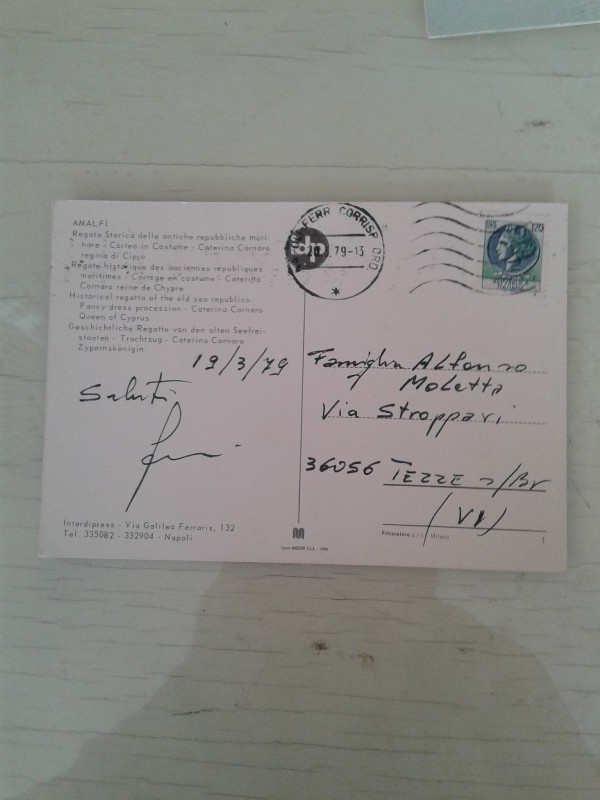 AMALFI
Regata Storica delle antiche repubbliche mari-
nare - Corteo in Costume - Caterina Cornaro
regina di Cipro
Regate historique des anciennes républiques
maritimes - Cortège en costume - Caterina
Cornaro reine de Chypre
Historical regatta of the old sea republics
Fancy dress procession - Caterina Cornaro
Queen of Cyprus
Geschichtliche Regatte von den alten Seefrei-
staaten - Trachtzug - Caterina Cornaro
Zypernskönigin
19/3/79
Saluti
Interdipress - Via Galileo Ferraris, 132
Tel. 335082 - 332904 - Napoli
FERR CORRISP ORD
.79-13
170
Famiglia Alfonso
Moletta
Via Stroppari
36056 TEZZE s/Br
(VI)
Fotocelere s.r.l. Milano